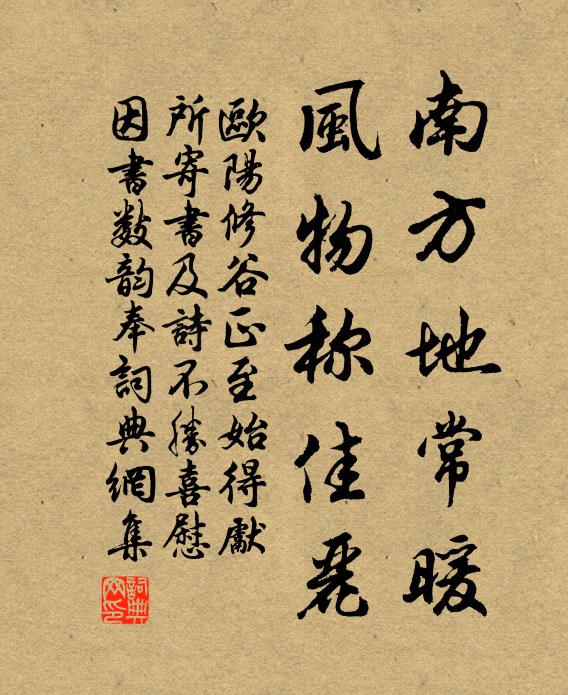 南方地常暖
風物称佳麗
歐陽修谷正至始得獻
所寄書及詩不勝喜慰
因書數韵奉詞典網集
詞典网印